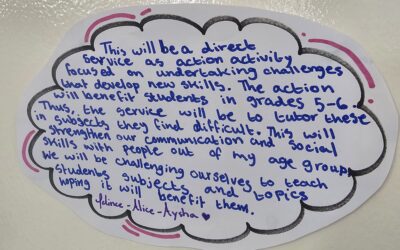 This will be a direct
service as action activity
focused on undertaking challenges
that develop new skills. The action
will benefit students in grades 5-6.
Thus, the service will be to tutor these
in subjects they find difficult. This will
strengthen our communication and social
skills with people out of my age group
We will be challenging ourselves to teach
students subjects and topics
hoping it will benefit them.
-Alice-Aysha